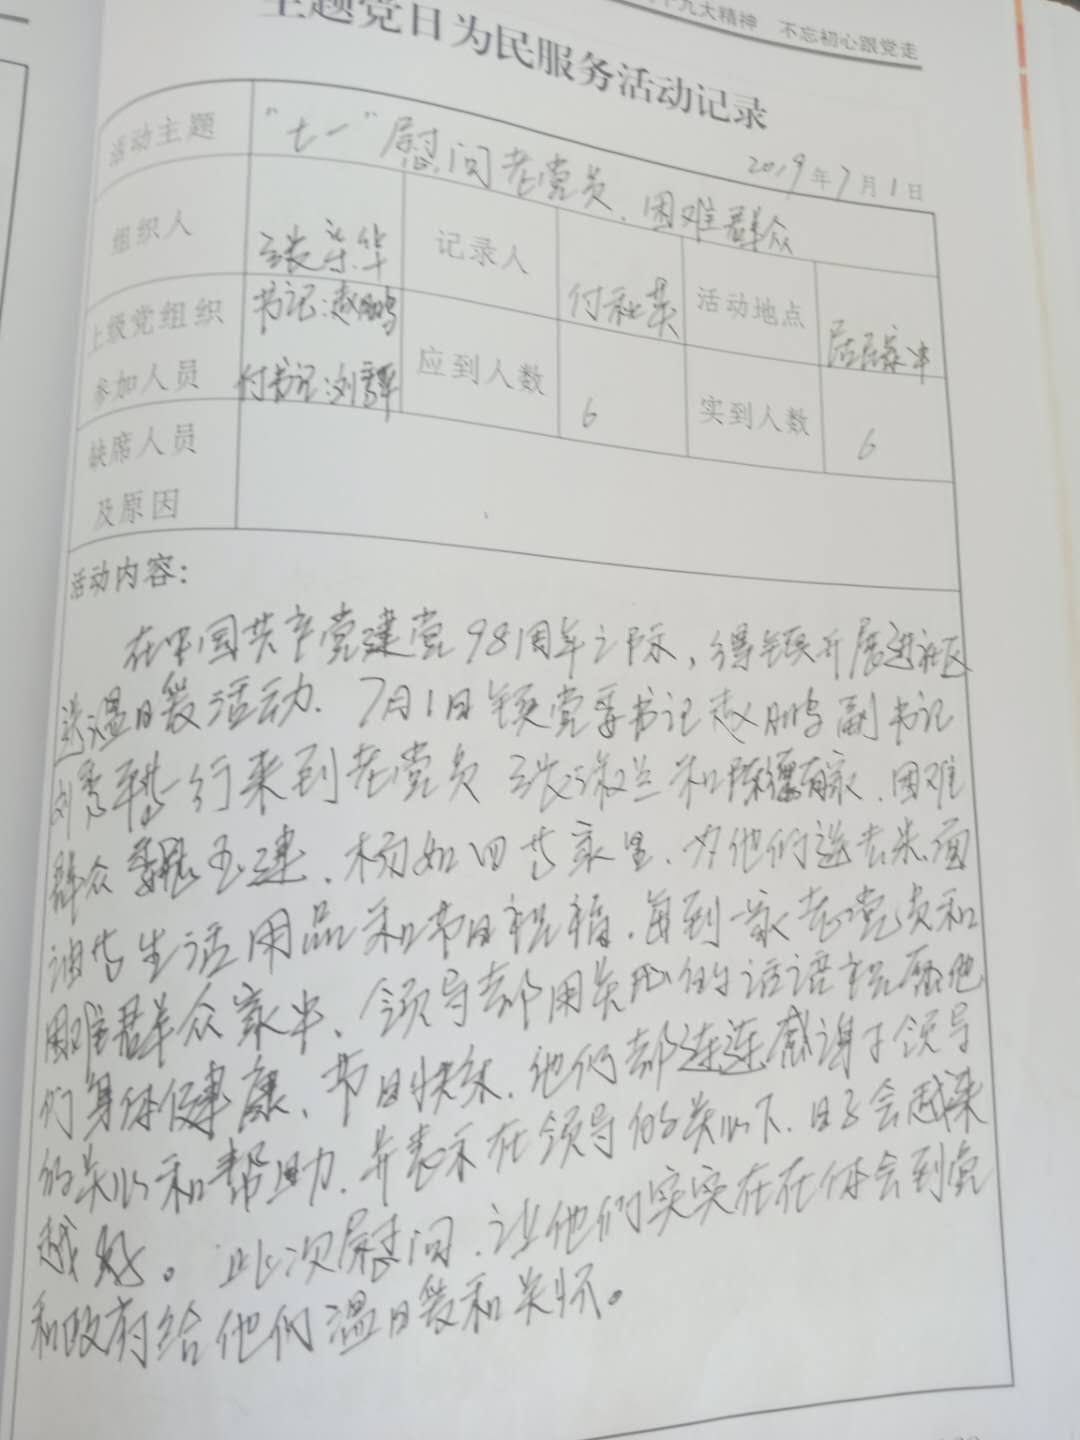 十九大精神 不忘初心跟党走
主题党日为民服务活动记录
2019年7月1日
活动主题 “七一”慰问老党员、困难群众
组织人 张荣华 记录人 付秋英 活动地点 居民家中
上级党组织参加人员 书记:赵鹏 付书记:刘 应到人数 6 实到人数 6
缺席人员及原因
活动内容:
在中国共产党建党98周年之际,得镇开展进社区
送温暖活动.7月1日镇党委书记赵鹏副书记
刘秀 一行来到老党员张淑兰和陈德有家、困难
群众 玉建、杨如四 家里、为他们送去米、面
油等生活用品和节日祝福.每到一家老党员和
困难群众家中、领导都用关心的话语祝愿他
们身体健康、节日快乐.他们都连连感谢了领导
的关心和帮助.并表示在领导的关心下.日子会越来
越好。此次慰问.让他们实实在在体会到党
和政府给他们温暖和关怀。